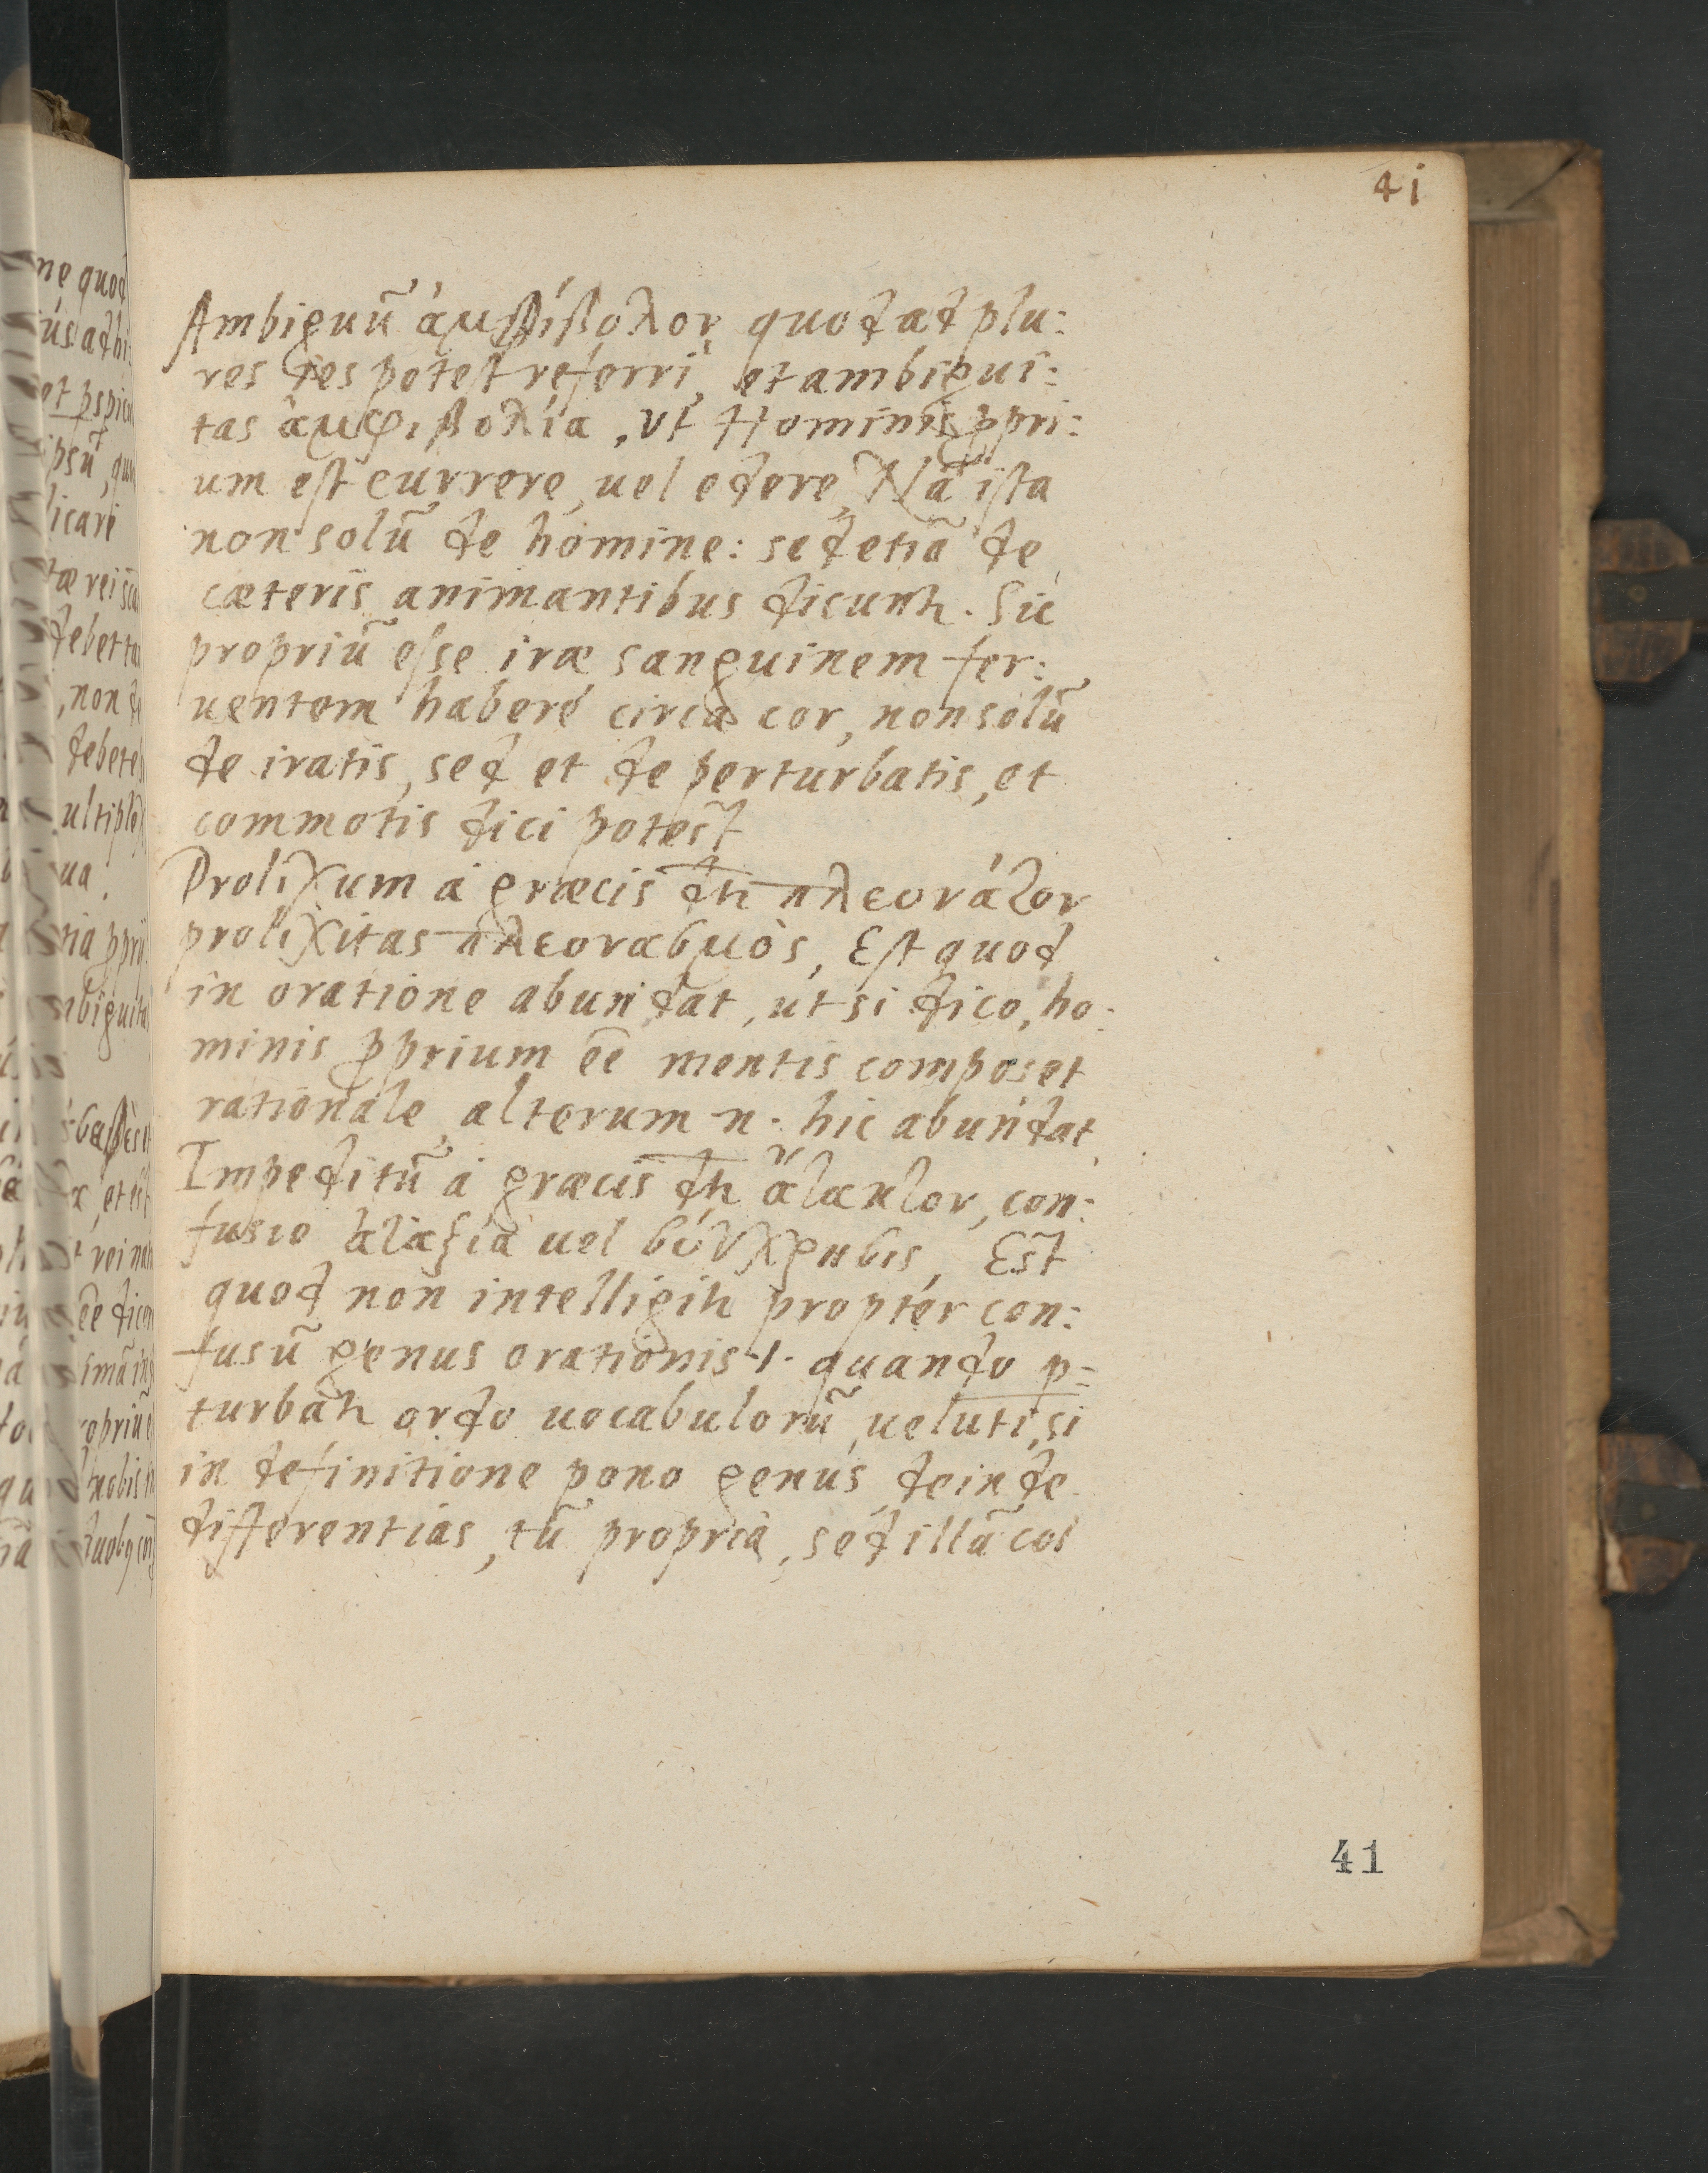 41
Ambiguũ ἀμφίβολον quod ad plu:
res res potest referri, et ambigui:
tas ἀμφιβολία, vt Hominis ꝓpri:
um est currere, uel edere, Nã ista
non solũ de homine: sed etiã de
cæteris animantibus dicunt᷑. Sic
propriũ esse iræ sanguinem fer:
uentem habere circa cor, non solũ
de iratis, sed et de perturbatis, et
commotis dici potest
Prolixum a græcis dr̃ πλεονάζον
prolixitas πλεονασμὸς, Est quod
in oratione abundat, ut si dico, ho:
minis ꝓprium eẽ mentis compos et
rationale, alterum n. hic abundat,
Impeditũ a græcis dr̃ ἄτακτον, con:
fusio ἀταξία uel σύγχρησις, Est
quod non intelligit᷑ propter con:
fusũ genus orationis .i. quando ꝑ=
turbat᷑ ordo uocabulorũ, ueluti, si
in definitione pono genus, deinde
differentias, tũ propria, sed illã col
41